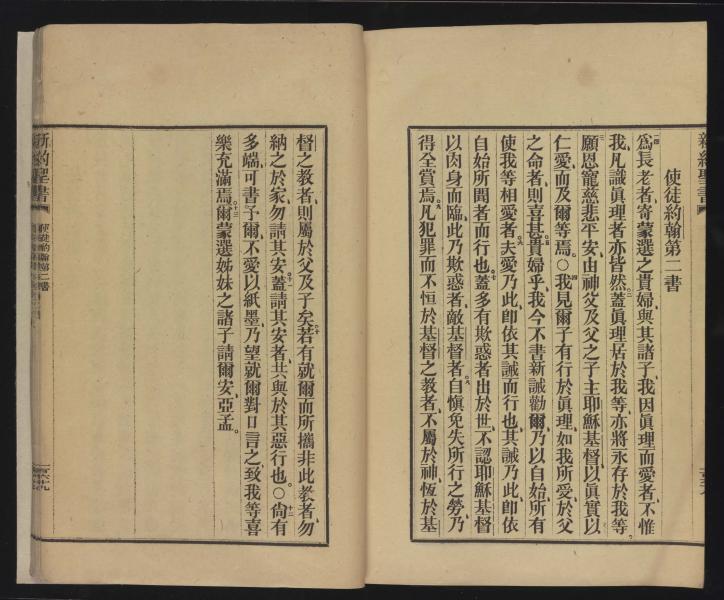 使徒約翰第二書
爲長老者、寄蒙選之貴婦、與其諸子、我因眞理而愛者、不惟
我、凡識眞理者亦皆然、蓋眞理居於我等、亦將永存於我等。
願恩寵慈悲平安、由神父及父之子主耶穌基督、以眞實以
仁愛、而及爾等焉。○我見爾子有行於眞理、如我所受於父
之命者、則喜甚、貴婦乎、我今不書新誡勸爾、乃以自始所有
使我等相愛者、夫愛乃此、卽依其誡而行也、其誡乃此、卽依
自始所聞者而行也、蓋多有欺惑者出於世、不認耶穌基督
以肉身而臨、此乃欺惑者、敵基督者、自愼免失所行之勞、乃
得全賞焉、凡犯罪而不恒於基督之教者、不屬於神、恆於基
新約聖書
督之教者、則屬於父及子矣、若有就爾而所攜非此教者、勿
納之於家、勿請其安、蓋請其安者、共與於其惡行也。○尙有
多端、可書予爾、不愛以紙墨、乃望就爾對口言之、致我等喜
樂充滿焉、爾蒙選姊妹之諸子請爾安、亞孟。
新約聖書